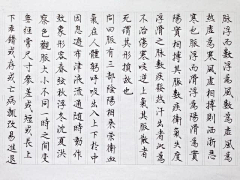 脉浮而数浮為風数為虛風
為熱虛為寒風虛相搏則洒淅惡
寒也脉浮而滑浮為陽滑為實
陽實相搏其脉数疾衛氣失度
浮滑之脉数疾發熱汗出者此為
不治傷寒欬逆上氣其脉散者
死謂其形損故也
問曰脉有三部陰陽相乘榮衛血
氣在人體躬呼吸出入上下於中
因息遊布津液流通隨時動作
效象形容春弦秋浮冬沈夏洪
察色觀脉大小不同一時之間變
無經常尺寸參差或短或長上
下乖錯或存或亡病輒改易進退